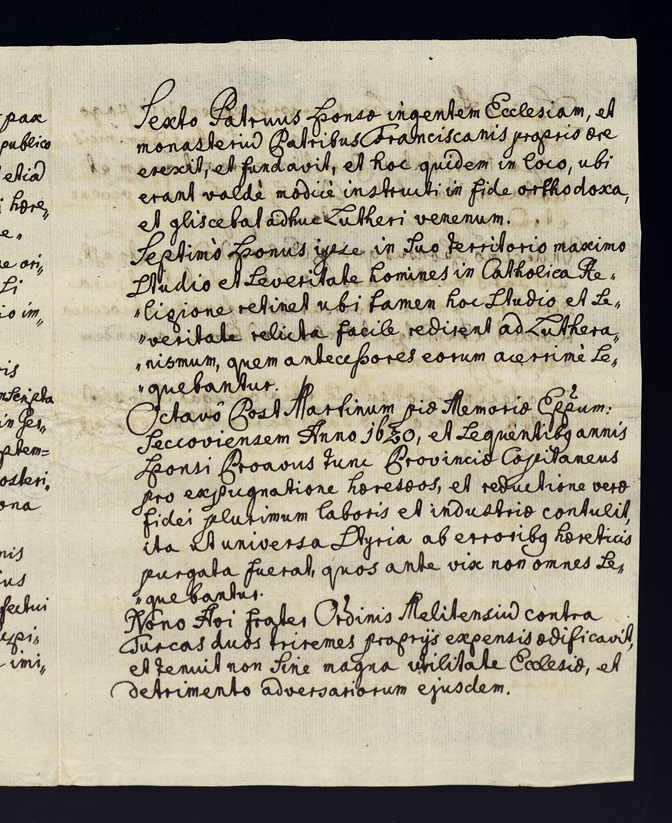 pax
publico
etiã
hære„
e„
e ori„
Li
io im„
ris
Inscripta
in Ger„
ptem=
posteri„
ona
nis
ius
fectui
uzpi„
imi„
Sexto Patruus sponsæ ingentem Ecclesiam, et
monasteriũ Patribus Franciscanis proprio ære
erexit, et fundavit, et hoc quidem in loco, ubi
erant valdè modicè instructi in fide orthodoxa,
et gliscebat adhuc Lutheri venenum.
Septimò Sponus ipse in suo territorio maximo
studio et severitate homines in Catholica Re„
„ligione retinet ubi tamen hoc studio et se„
„veritate relicta facile redirent ad Luthera„
„nismum, quem antecessores eorum acerrimè se„
„quebantur.
Octavò Post Martinum piæ Memoriæ Eppum:
Seccoviensem Anno 1630, et sequentibq annis
sponsi Proavus tunc Provinciæ Capitaneus
pro expugnatione hæreseos, et reductione veræ
fidei plurimum laboris et industriæ contulit,
ita ut universa Styria ab erroribq hæreticis
purgata fuerat, quos ante vix non omnes se„
„quebantur.
Nono Avi frater Ordinis Melitensiũ contra
Turcas duos triremes proprijs expensis ædificavit,
et tenuit non sine magna utilitate Ecclesiæ, et
detrimento adversariorum ejusdem.